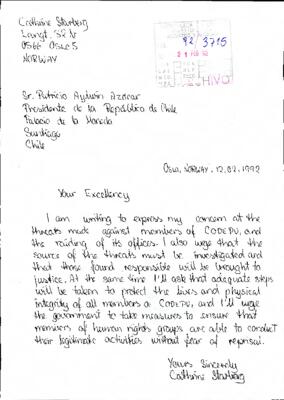 Cathrine Starberg
Langt. 52 V
0566 OSLO 5
NORWAY
92 / 3715
21 FEB 92
HIVO
Sr. Patricio Aylwin Azócar
Presidente de la República de Chile
Palacio de la Moneda
Santiago
Chile
Oslo, NORWAY, 12.02.1992
Your Excellency
I am writing to express my concern at the
threats made against members of CODEPU, and
the raiding of its offices. I also urge that the
source of the threats must be investigated and
that those found responsible will be brought to
justice. At the same time I'll ask that adequate steps
will be taken to protect the lives and physical
integrity of all members of CODEPU, and I'll urge
the government to take measures to ensure that
members of human rights groups are able to conduct
their legitimate activities without fear of reprisal.
Yours Sincerely
Cathrine Starberg